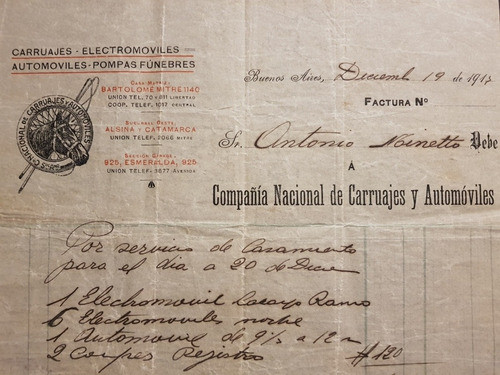 CARRUAJES - ELECTROMOVILES
AUTOMOVILES - POMPAS FÚNEBRES
CASA MATRIZ
BARTOLOMÉ MITRE 1140
UNION TEL. 70 y 81 LIBERTAD
COOP. TELEF. 1017 CENTRAL
SUCURSAL OESTE
ALSINA - CATAMARCA
UNION TELEF. 2066 MITRE
SECCIÓN
925, ESMERALDA, 925
UNION TELEF. 3677 AVENIDA
CIA. NACIONAL DE CARRUAJES Y AUTOMÓVILES
Buenos Aires, Diciemb 19 de 191
FACTURA Nº
Sr. Antonio Debe
Á
Compañía Nacional de Carruajes y Automóviles
Por servicio de Casamiento
para el dia a 20 de Dicre
1 Electromovil Lacayo Ramo
6 Electromoviles noche
1 Automovil de 9½ a 12
2 Coupes Registro
$ 120